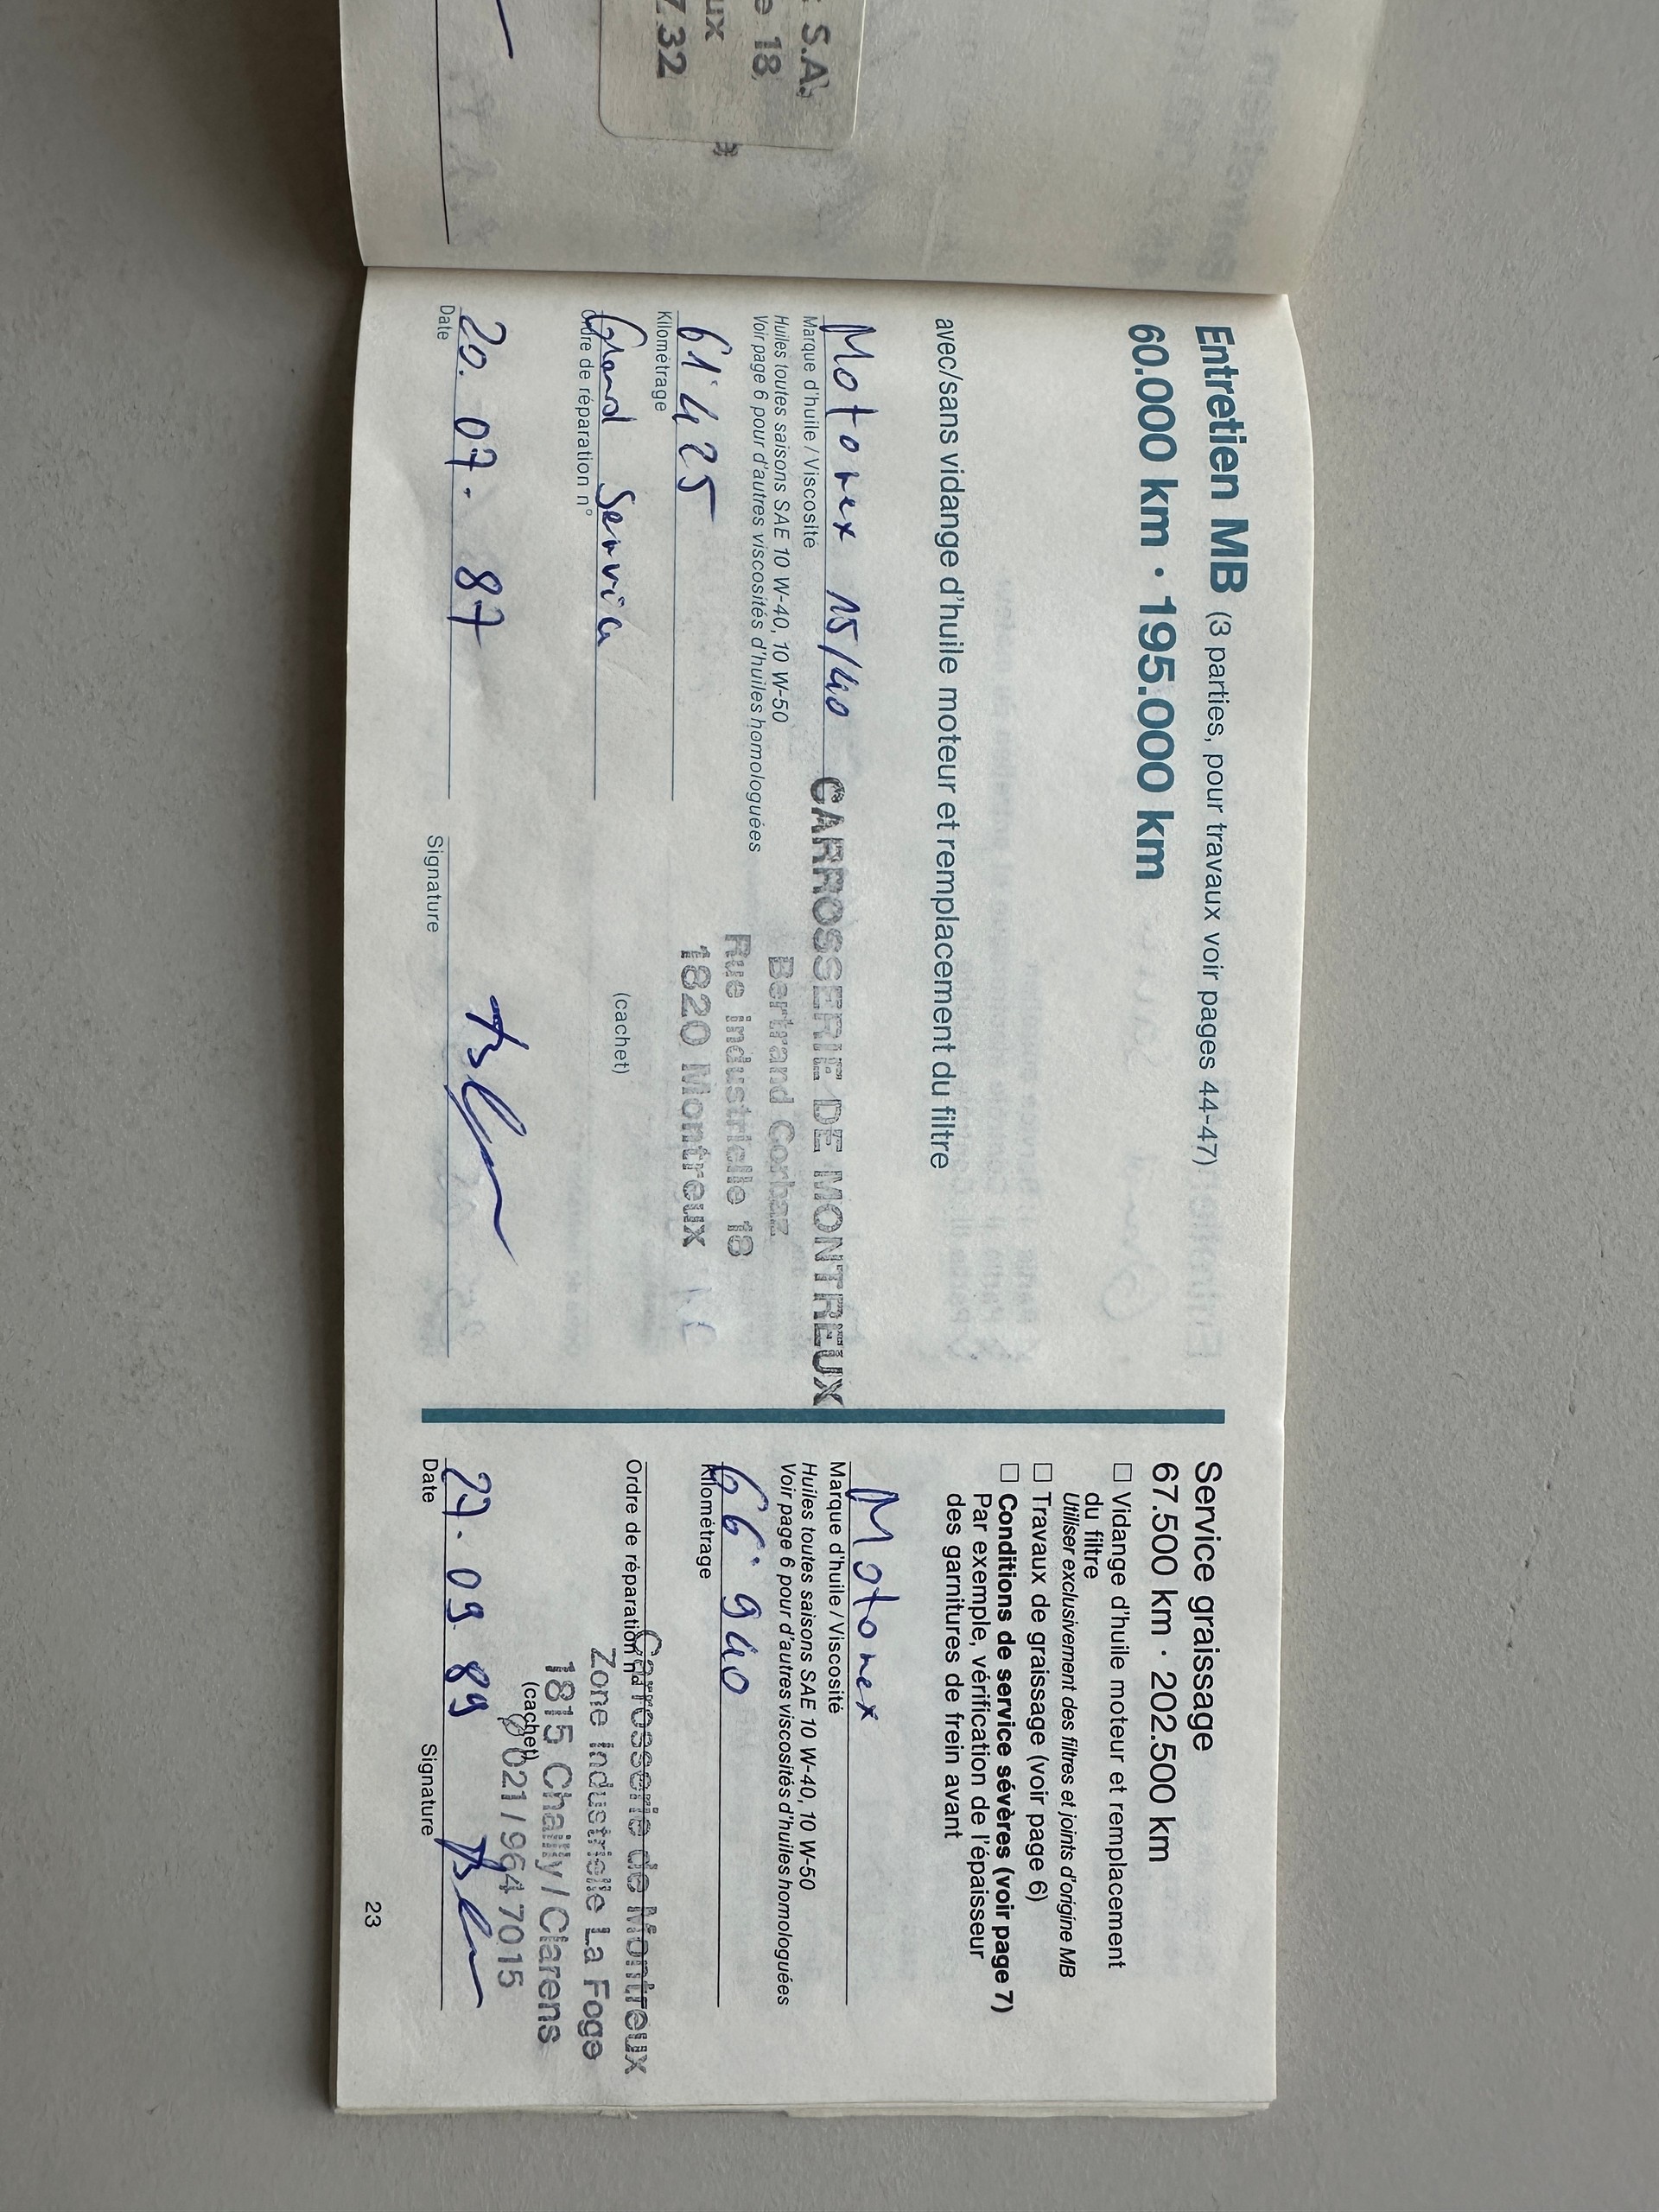 S.A.
e 18
ux
7.32
Entretien MB (3 parties, pour travaux voir pages 44-47)
60.000 km · 195.000 km
avec/sans vidange d'huile moteur et remplacement du filtre
Motorex 15/40
Marque d'huile / Viscosité
Huiles toutes saisons SAE 10 W-40, 10 W-50
Voir page 6 pour d'autres viscosités d'huiles homologuées
61'425
Kilométrage
Grand Service
Ordre de réparation n°
CARROSSERIE DE MONTREUX
Bertrand Corbaz
Rue industrielle 18
1820 Montreux
(cachet)
20. 07. 87
Date
Signature
Service graissage
67.500 km · 202.500 km
□ Vidange d'huile moteur et remplacement
du filtre
Utiliser exclusivement des filtres et joints d'origine MB
□ Travaux de graissage (voir page 6)
□ Conditions de service sévères (voir page 7)
Par exemple, vérification de l'épaisseur
des garnitures de frein avant
Motorex
Marque d'huile / Viscosité
Huiles toutes saisons SAE 10 W-40, 10 W-50
Voir page 6 pour d'autres viscosités d'huiles homologuées
66'940
Kilométrage
Ordre de réparation n°
Carrosserie de Montreux
Zone Industrielle La Foge
1815 Chailly / Clarens
(cachet)
021 / 964 7015
29. 09 89
Date
Signature
23